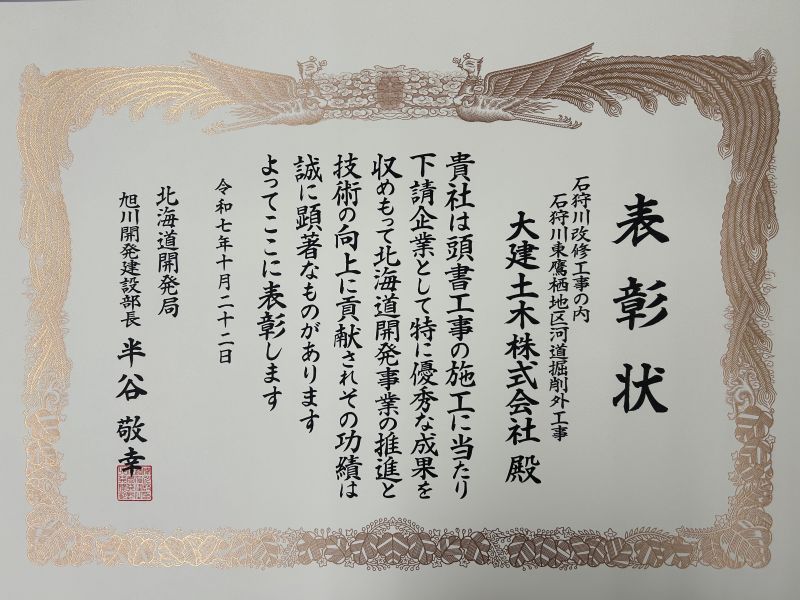 表彰状
石狩川改修工事の内
石狩川東鷹栖地区河道掘削外工事
大建土木株式会社 殿
貴社は頭書工事の施工に当たり
下請企業として特に優秀な成果を
収めもって北海道開発事業の推進と
技術の向上に貢献されその功績は
誠に顕著なものがあります
よってここに表彰します
令和七年十月二十二日
北海道開発局
旭川開発建設部長 半谷 敬幸